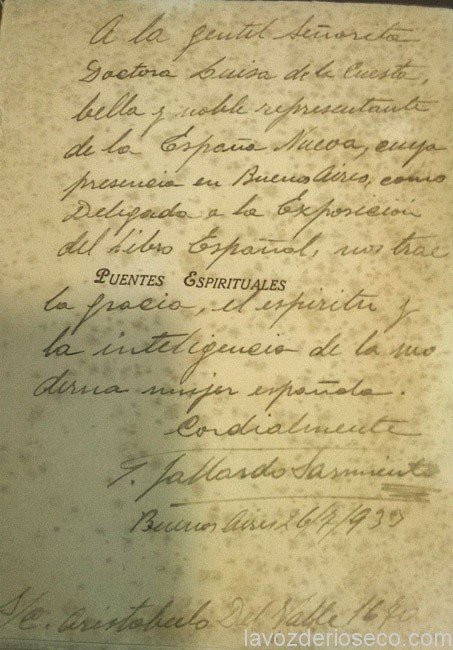 A la gentil Señorita
Doctora Luisa de la Cuesta,
bella y noble representante
de la España Nueva, cuya
presencia en Buenos Aires, como
Delegada a la Exposición
del Libro Español, nos trae
PUENTES ESPIRITUALES
la gracia, el espiritu y
la inteligencia de la mo
derna mujer española.
Cordialmente
Gallardo Sarmiento
Buenos Aires 26/7/933
S/C. Aristobulo Del Valle 1640
lavozderioseco.com